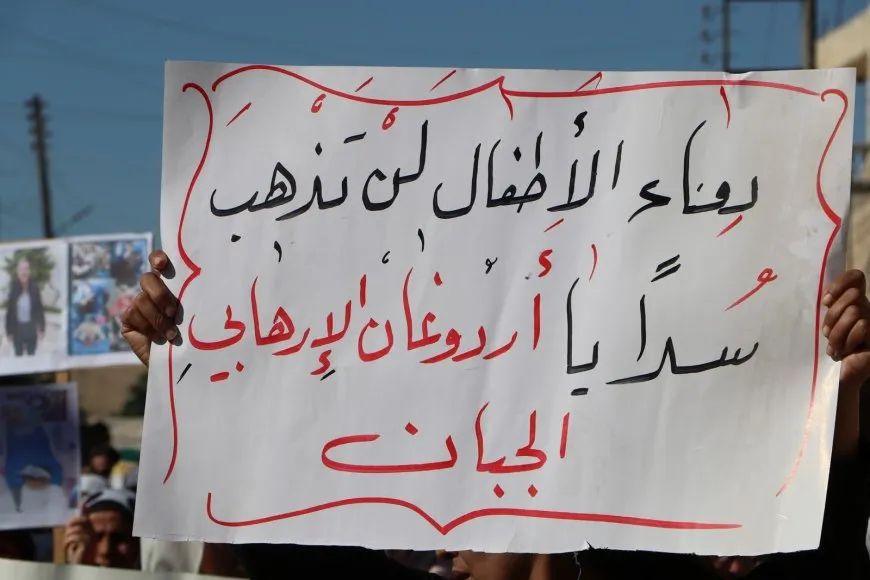 دماء الأطفال لن تذهب
سُداً يا أردوغان الإرهابي
الجبان